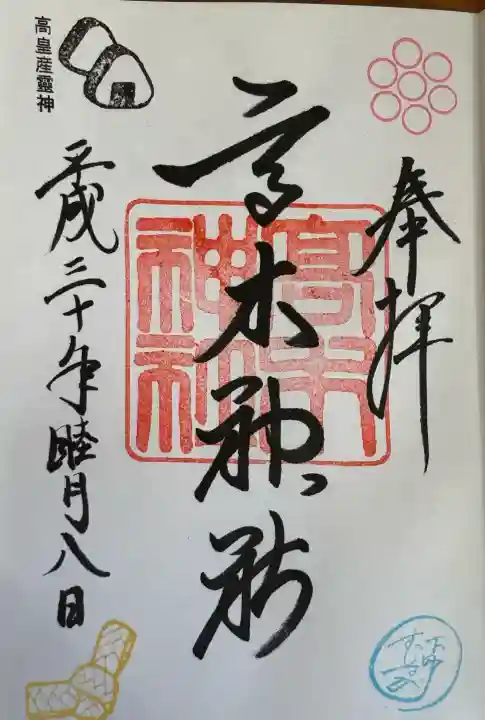 奉拝
高木神社
高木神社
高皇産靈神
平成三十年睦月八日